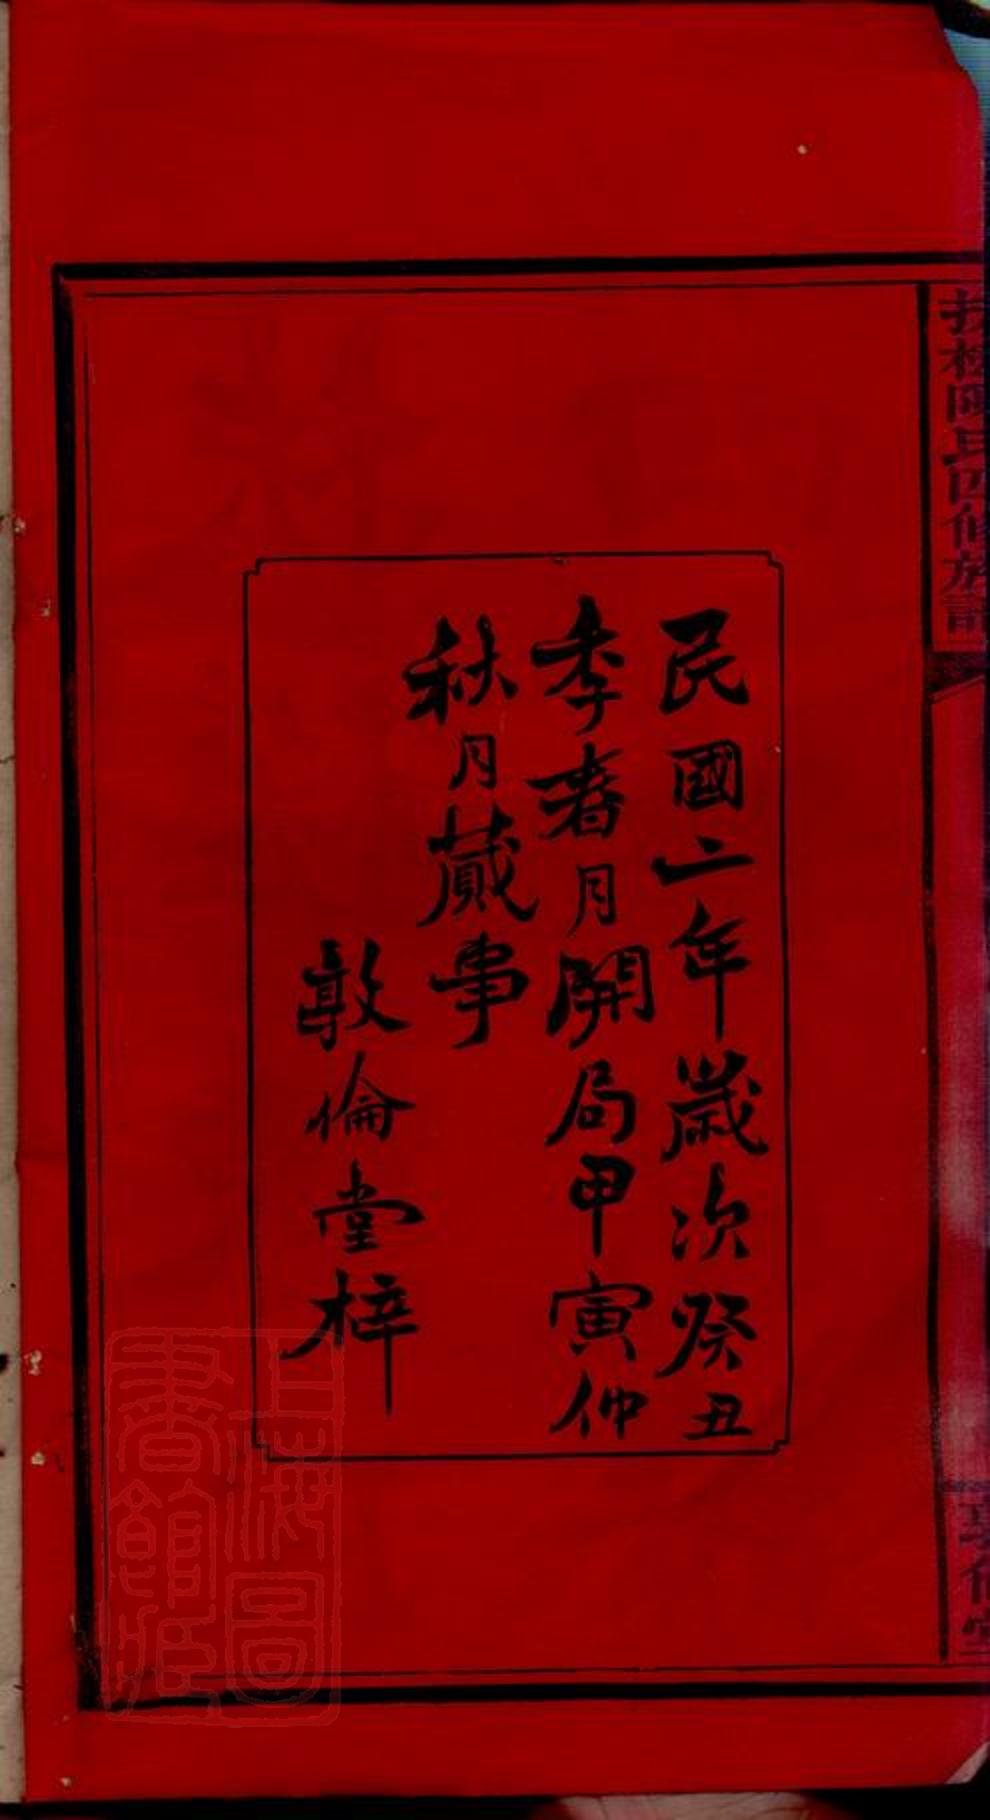 民國二年歲次癸丑
季春月開局甲寅仲
秋月蕆事
敦倫堂梓
上海圖書館藏